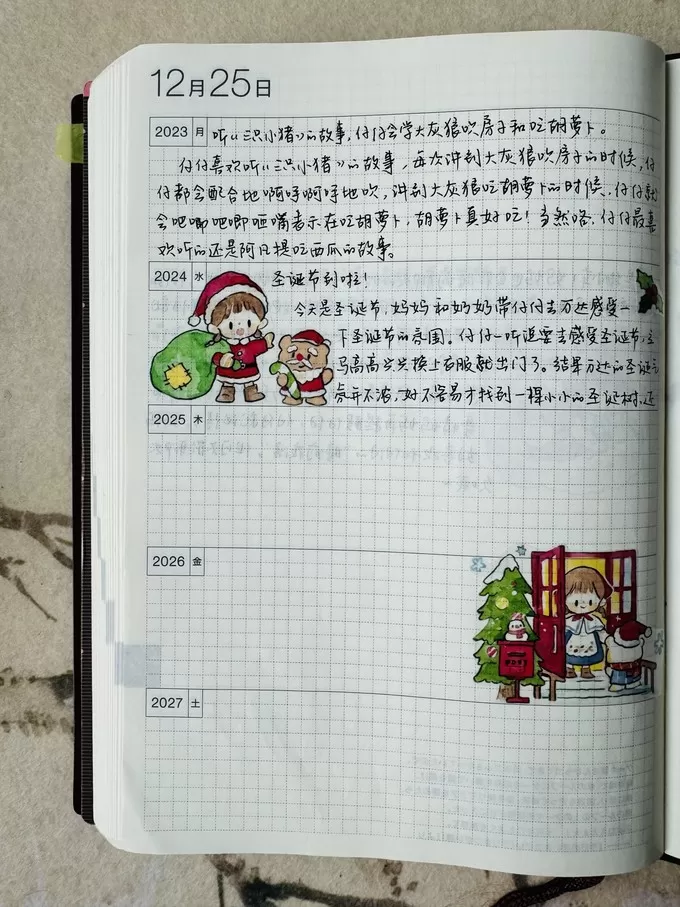 12月25日
2023 月 听《三只小猪》的故事,仔仔会学大灰狼吹房子和吃胡萝卜。
仔仔喜欢听《三只小猪》的故事,每次讲到大灰狼吹房子的时候,仔
仔都会配合地啊呼啊呼地吹,讲到大灰狼吃胡萝卜的时候,仔仔就
会吧唧吧唧咂嘴表示在吃胡萝卜,胡萝卜真好吃!当然咯,仔仔最喜
欢听的还是阿凡提吃西瓜的故事。
2024 水 圣诞节到啦!
今天是圣诞节,妈妈和奶奶带仔仔去万达感受一
下圣诞节的氛围。仔仔一听说要去感受圣诞节,立
马高高兴兴换上衣服就出门了。结果万达的圣诞气
氛并不浓,好不容易才找到一棵小小的圣诞树,还
2025 木
2026 金
POST
2027 土